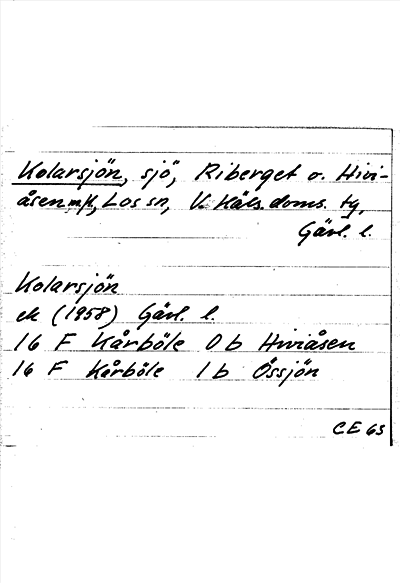 Kolarsjön, sjö, Riberget o. Hivi-
åsen m fl, Los sn, V. Häls. doms. tg,
Gävl. l.
Kolarsjön
ek (1958) Gävl. l.
16 F Kårböle 0 b Hiviåsen
16 F Kårböle 1 b Össjön
CE 63